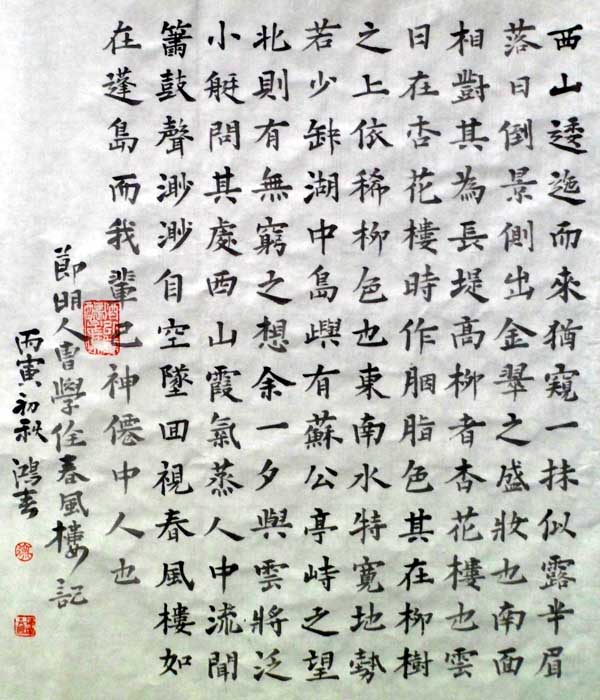 西山逶迤而來猶窺一抹似露半眉
落日倒景側出金翠之盛妝也南面
相對其為長堤高柳者杏花樓也雲
日在杏花樓時作胭脂色其在柳樹
之上依稀柳色也東南水特寬地勢
若少缺湖中島嶼有蘇公亭峙之望
北則有無窮之想余一夕與雲將泛
小艇問其處西山霞氣蒸人中流聞
簫鼓聲渺渺自空墜回視春風樓如
在蓬島而我輩已神僊中人也
節明人曹學佺春風樓記
丙寅初秋 鴻